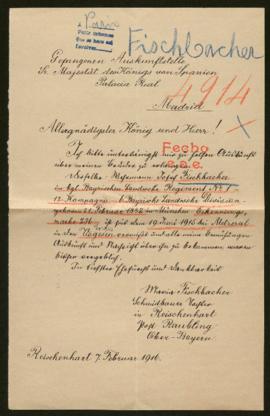 Paris
Fischbacher
Gefangenen Auskunftstelle
Sr. Majestät des Königs von Spanien
Palacio Real
4914
Madrid
Allergnädigster König und Herr!
Fecho
e.e.e.
Ich bitte untertänigst mir zu helfen Auskunft
über meinen Bruder zu erlangen.
Gefolgs Wehrmann Josef Fischbacher
im kgl. Bayrischen Landwehr Regiment No 1
12 Kompagnie 6 Bayrische Landwehr Division
geboren 21. Februar 1882 in München Erkennungs
ist seit dem 19 Juni 1915 bei Metzeral
in den Vogesen vermißt und alle meine Bemühungen
Auskunft und Nachricht über ihn zu bekommen waren
bisher vergeblich.
In tiefster Ehrfurcht und Dankbarkeit
Maria Fischbacher
in Reischenhart
Post Raubling
Ober-Bayern
Reischenhart 7. Februar 1916.